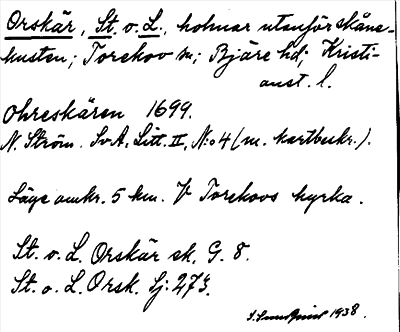 Orskär, St. o. L., holmar utanför skåne-
kusten; Torekov sn; Bjäre hd; Kristi-
anst. l.
Ohreskären 1699.
N. Ström. SvA, Litt. II, N:o 4 (m. kartbeskr.).
Läge omkr. 5 km. V Torekovs kyrka.
St. o. L. Orskär sk. G. 8.
St. o. L. Orsk. Sj: 273.
1938.